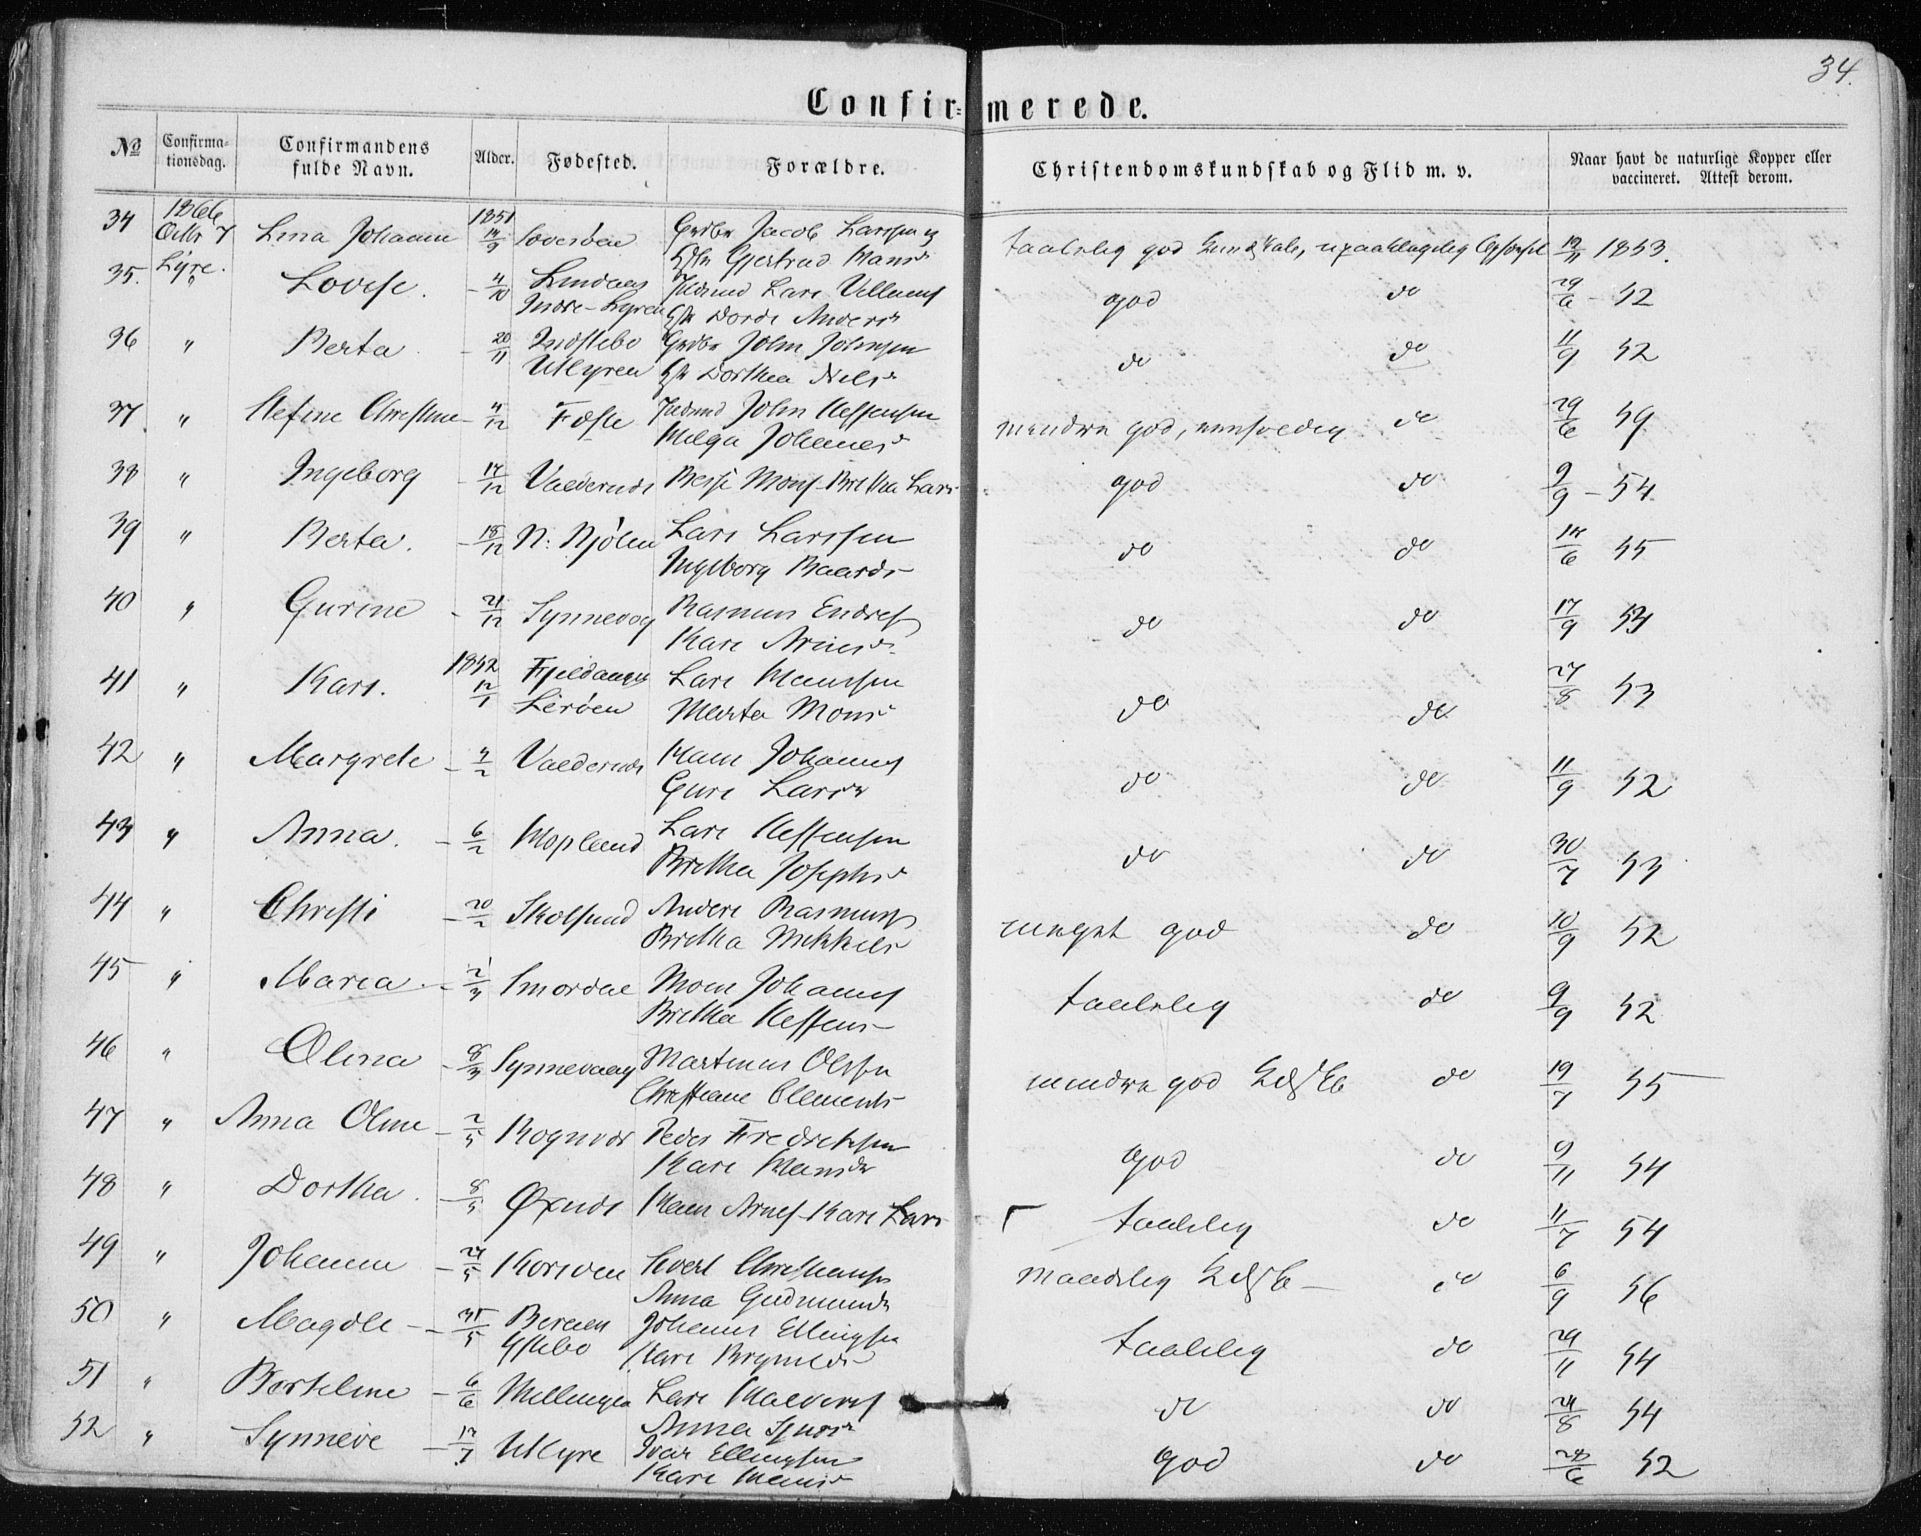 34.
Confirmerede.
№ Confirmationsdag. Confirmandens fulde Navn. Alder. Fødested. Forældre. Christendomskundskab og Flid m. v. Naar havt de naturlige Kopper eller vaccineret. Attest derom.
34 1866 Octbr 7 Lina Johanne 1851 14/9 Gdbr Jacob Larssen og
Lyre. Gjertrud Hans taalelig god Kundskab, upaaklagelig 12/11 1853.
35. " Lovise. - 4/10 Lindaas Lars Villums
Indre-Lyren Dorde Anders god do 29/6 - 52
36 " Berta - 20/11 Indstebo Gdbr John Johnsen
Utlyren Dorthea Niels do do 11/9 52
37 " Stefine Christine - 4/12 Fæste John Steffensen
Helga Johannes mindre god, eenfoldig do 29/6 59
38 " Ingeborg - 17/12 Valdernds Mons - Britha Lars god do 9/9 - 54
39 " Berta. - 18/12 N: Njølen Lars Larssen
Ingeborg Baards do do 14/6 55
40 " Gurine - 21/12 Synnevog Rasmus Endres
Kari Arnes do do 17/9 53
41 " Kari. 1852 12/1 Fjeldanger Lars Hanssen
Lerøen Marta Mons do do 27/8 53
42 " Margrete - 4/2 Valdernds Hans Johannes
Guri Lars do do 11/9 52
43 " Anna. - 6/2 Hopland Lars Steffensen
Britha Josephs do do 30/7 53
44 " Christi - 20/2 Skolsund Anders Rasmus
Britha Mikkels meget god do 10/9 52
45 " Maria. - 2/3 Smordal Mons Johannes
Britha Steffens taalelig do 9/9 52
46 " Olina - 8/3 Synnevaag Martinus Olssen
Christiane Clements mindre god Kdskb do 19/7 55
47 " Anna Oline - 2/5 Rognvær Peder Fredriksen
Kari Hans god do 9/11 54
48 " Dorthea. - 8/5 Øxnds Hans Arnes - Kari Lars taalelig do 11/7 54
49 " Johanne - 24/5 Korsøen Sivert Christians
Anna Gudmunds maadelig Kdskb - do 6/9 56
50 " Magdle - 31/5 Bergen Johannes Ellingsen
Ystebo Kari Brynilds taalelig do 29/11 54
51 " Berteline - 6/6 Mellingen Lars Halvors
Anna do do 24/8 54
52 " Synneve - 12/7 Utlyre Ivar Ellingsen
Kari Hans god do 28/6 52